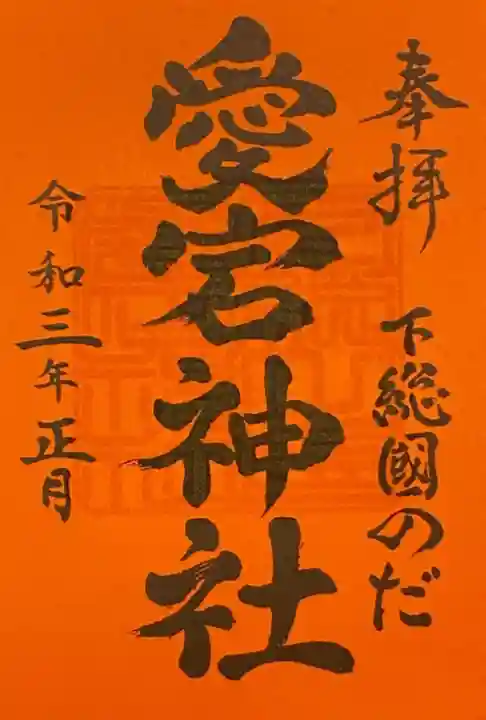 奉拝 下総國のだ
愛宕神社
令和三年正月